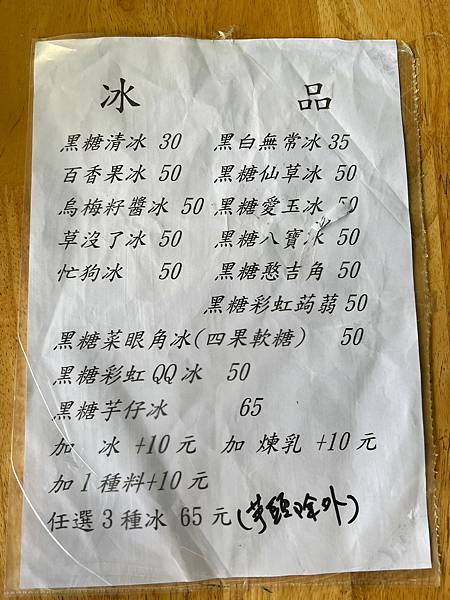 冰 品
黑糖清冰 30 黑白無常冰 35
百香果冰 50 黑糖仙草冰 50
烏梅籽醬冰 50 黑糖愛玉冰 50
草沒了冰 50 黑糖八寶冰 50
忙狗冰 50 黑糖憨吉角 50
黑糖彩虹蒟蒻 50
黑糖菜眼角冰(四果軟糖) 50
黑糖彩虹QQ冰 50
黑糖芋仔冰 65
加 冰 +10元 加 煉乳 +10元
加1種料+10元
任選3種冰 65元(芋頭除外)